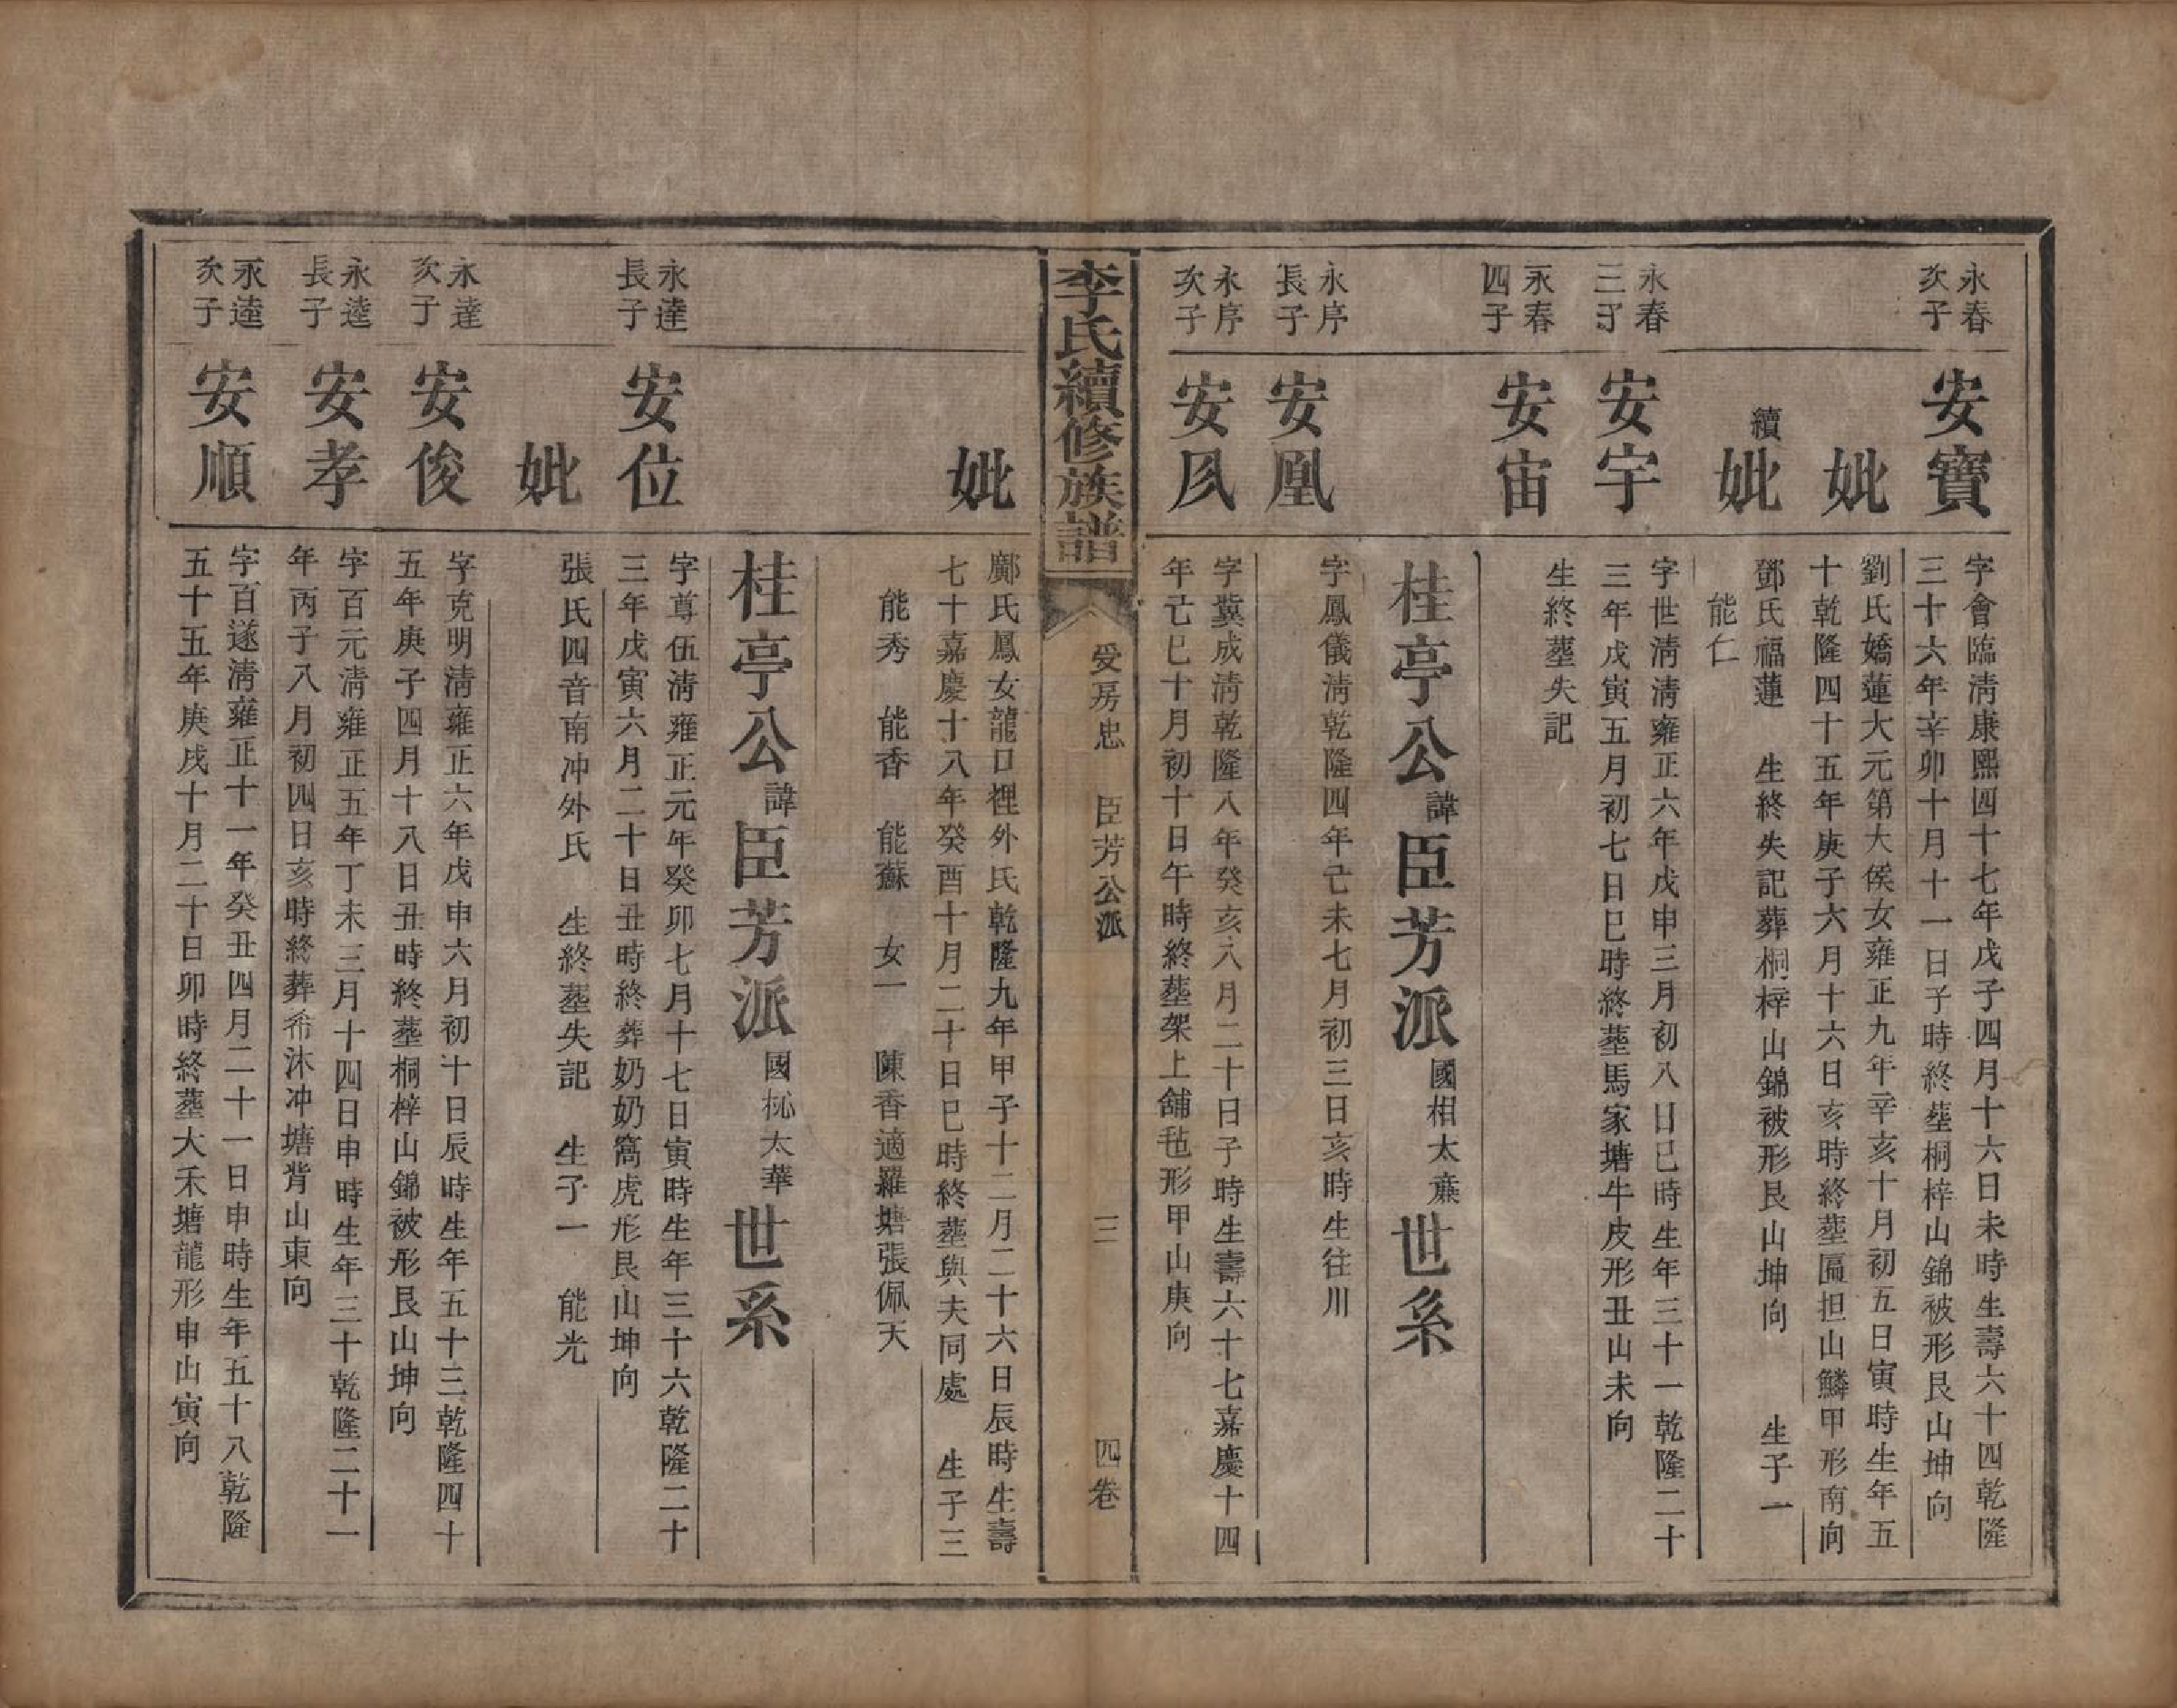 永春
次子
安寶
字會臨淸康熙四十七年戊子四月十六日未時生壽六十四乾隆
三十六年辛卯十月十一日子時終塟桐梓山錦被形艮山坤向
妣
劉氏嬌蓮大元第大俟女雍正九年辛亥十月初五日寅時生年五
十乾隆四十五年庚子六月十六日亥時終塟匾担山鱗甲形南向
續妣
鄧氏福蓮 生終失記葬桐梓山錦被形艮山坤向 生子一
能仁
永春
三子
安宇
字世淸淸雍正六年戊申三月初八日巳時生年三十一乾隆二十
三年戊寅五月初七日巳時終塟馬家塘牛皮形丑山未向
永春
四子
安宙
生終塟失記
桂亭公諱臣芳派國相太㢘世系
永序
長子
安凰
字鳳儀淸乾隆四年己未七月初三日亥時生往川
永序
次子
安凨
字冀成淸乾隆八年癸亥六月二十日子時生壽六十七嘉慶十四
年己巳十月初十日午時終塟架上舖毡形甲山庚向
李氏續修族譜
受房忠 臣芳公派 三 四卷
妣
鄺氏鳳女龍口裡外氏乾隆九年甲子十二月二十六日辰時生壽
七十嘉慶十八年癸酉十月二十日巳時終塟與夫同處 生子三
能秀 能香 能蘇 女一 陳香適羅塘張佩天
桂亭公諱臣芳派國𣏌太華世系
永逹
長子
安位
字尊伍淸雍正元年癸卯七月十七日寅時生年三十六乾隆二十
三年戊寅六月二十日丑時終葬奶奶窩虎形艮山坤向
妣
張氏四音南冲外氏 生終塟失記 生子一 能光
永逹
次子
安俊
字克明淸雍正六年戊申六月初十日辰時生年五十三乾隆四十
五年庚子四月十八日丑時終塟桐梓山錦被形艮山坤向
永逵
長子
安孝
字百元淸雍正五年丁未三月十四日申時生年三十乾隆二十一
年丙子八月初四日亥時終葬希沐冲塘背山東向
永逵
次子
安順
字百遂淸雍正十一年癸丑四月二十一日申時生年五十八乾隆
五十五年庚戌十月二十日卯時終塟大禾塘龍形申山寅向